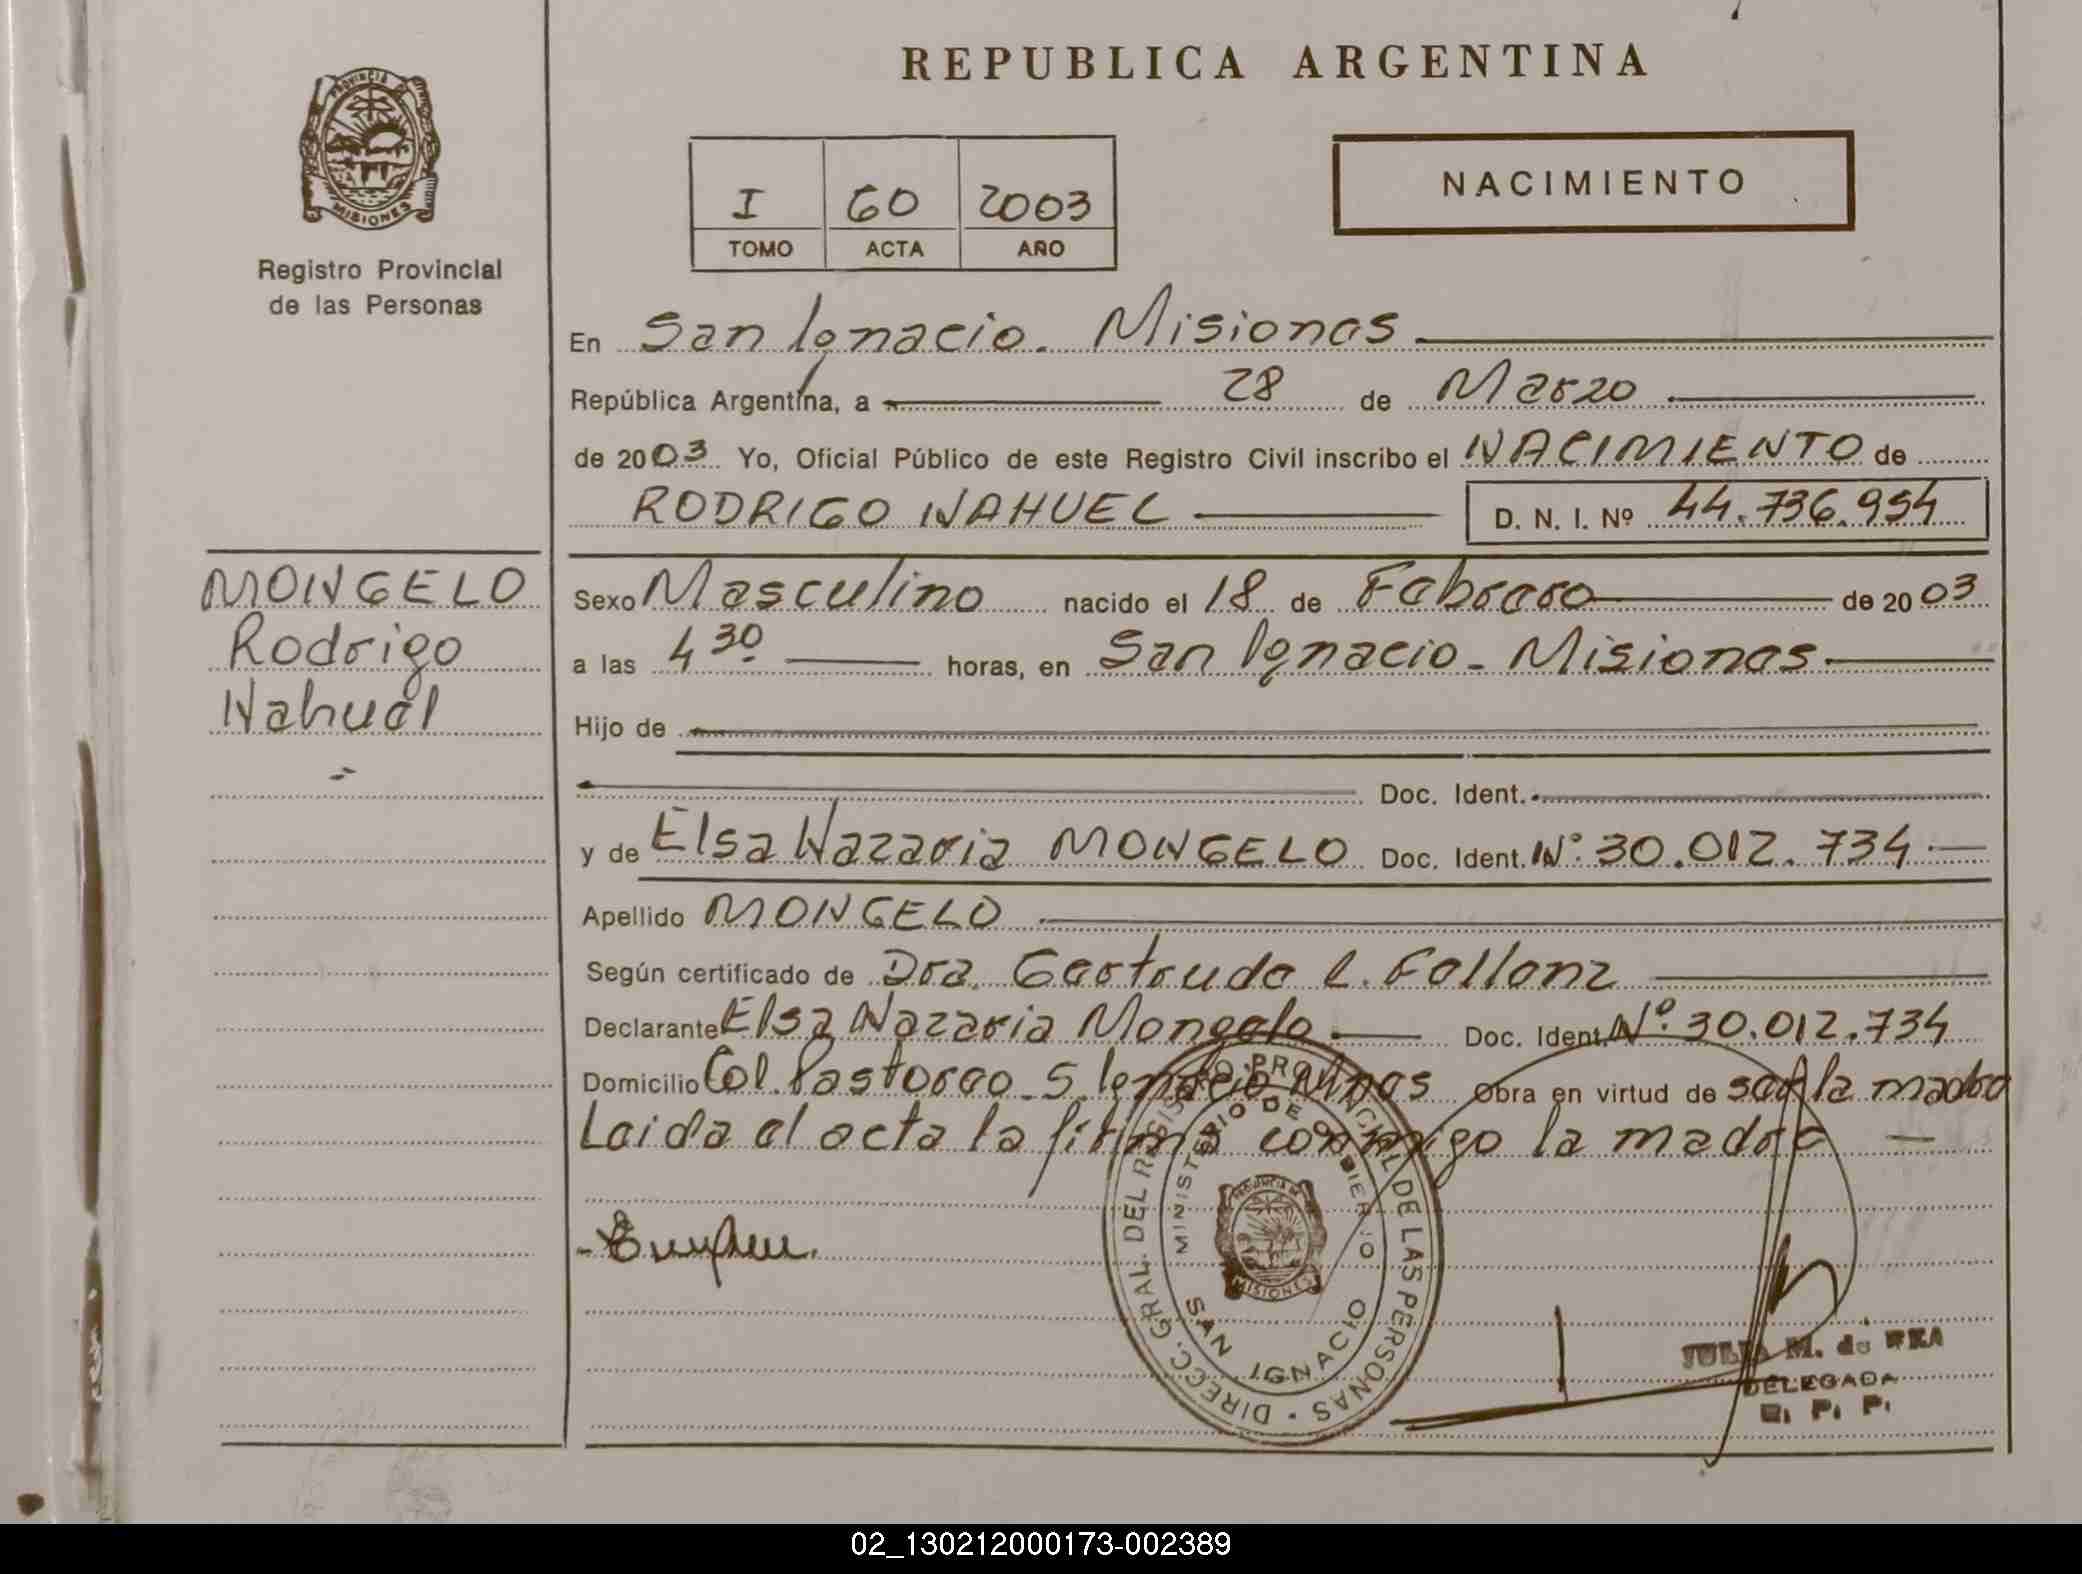 REPUBLICA ARGENTINA
PROVINCIA DE
MISIONES
Registro Provincial
de las Personas
I 60 2003
TOMO ACTA AÑO
NACIMIENTO
En San Ignacio - Misiones
República Argentina, a 28 de Marzo
de 2003 Yo, Oficial Público de este Registro Civil inscribo el NACIMIENTO de
RODRIGO NAHUEL D. N. I. Nº 44.736.954
MONGELO
Rodrigo
Nahuel
Sexo Masculino nacido el 18 de Febrero de 2003
a las 4 30 horas, en San Ignacio - Misiones
Hijo de
Doc. Ident.
y de Elsa Nazaria MONGELO Doc. Ident. Nº 30.012.734
Apellido MONGELO
Según certificado de Dra. Gertrude L.
Declarante Elsa Nazaria Mongelo Doc. Ident. Nº 30.012.734
Domicilio Col. Pastoreo - S. Ignacio Mnes Obra en virtud de ser la madre
Leida el acta la firma conmigo la madre
DIRECC. GRAL. DEL REGISTRO PROVINCIAL DE LAS PERSONAS
MINISTERIO DE GOBIERNO
PROVINCIA DE
MISIONES
SAN IGNACIO
JULIA M. de REA
DELEGADA
R. P. P.
02_130212000173-002389